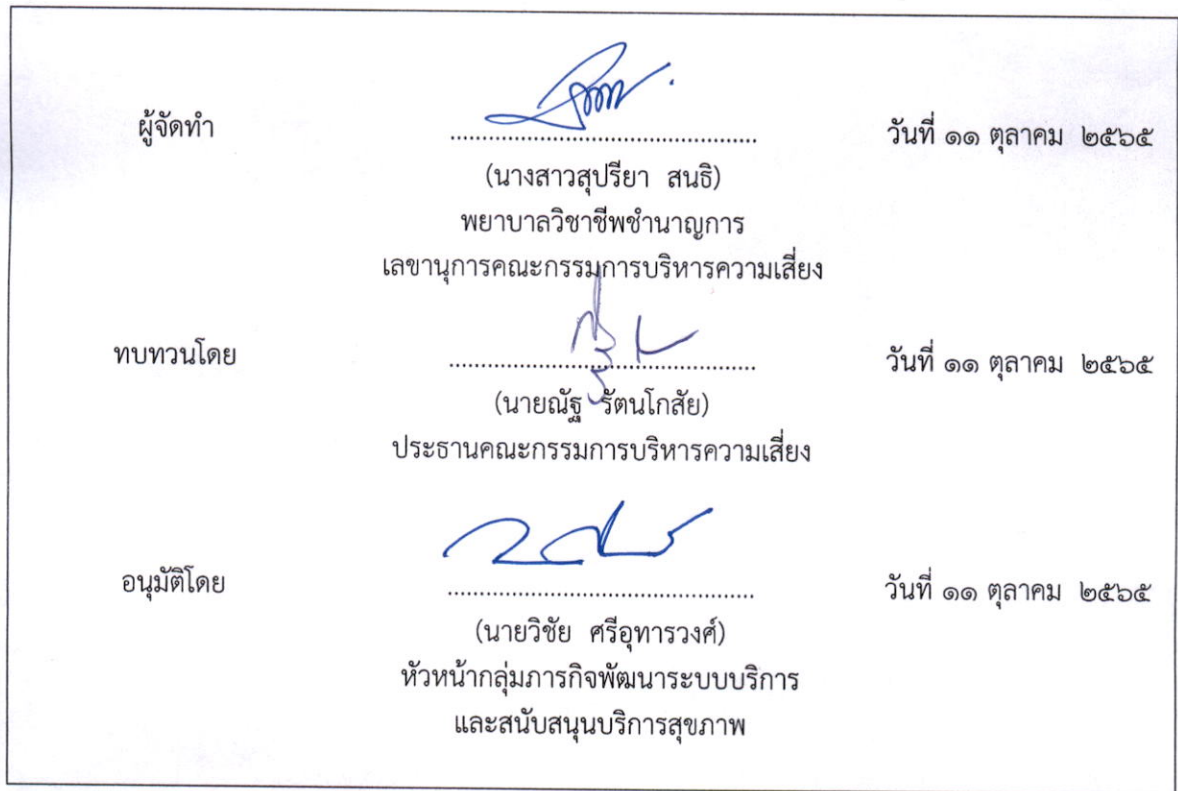 ผู้จัดทำ ........................................ วันที่ ๑๑ ตุลาคม ๒๕๖๕
(นางสาวสุปรียา สนธิ)
พยาบาลวิชาชีพชำนาญการ
เลขานุการคณะกรรมการบริหารความเสี่ยง
ทบทวนโดย ........................................ วันที่ ๑๑ ตุลาคม ๒๕๖๕
(นายณัฐ รัตนโกสัย)
ประธานคณะกรรมการบริหารความเสี่ยง
อนุมัติโดย ........................................ วันที่ ๑๑ ตุลาคม ๒๕๖๕
(นายวิชัย ศรีอุทารวงศ์)
หัวหน้ากลุ่มภารกิจพัฒนาระบบบริการ
และสนับสนุนบริการสุขภาพ